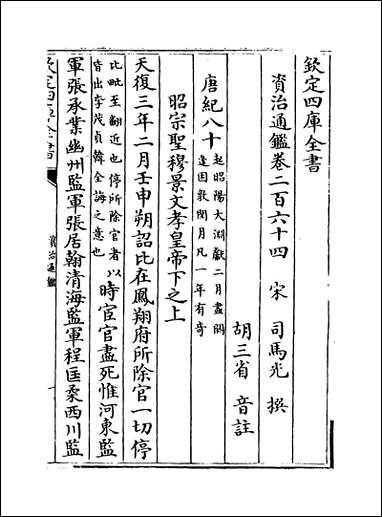 欽定四庫全書
資治通鑑卷二百六十四 宋 司馬光 撰
胡三省 音註
唐紀八十 起昭陽大淵獻二月盡閼
逢困敦閏月凡一年有奇
昭宗聖穆景文孝皇帝下之上
天復三年二月壬申朔詔比在鳳翔府所除官一切停
比毗至翻近也停所除官者以
皆出李茂貞韓全誨之意也 時宦官盡死惟河東監
軍張承業幽州監軍張居翰清海監軍程匡柔西川監
欽定四庫全書
資治通鑑